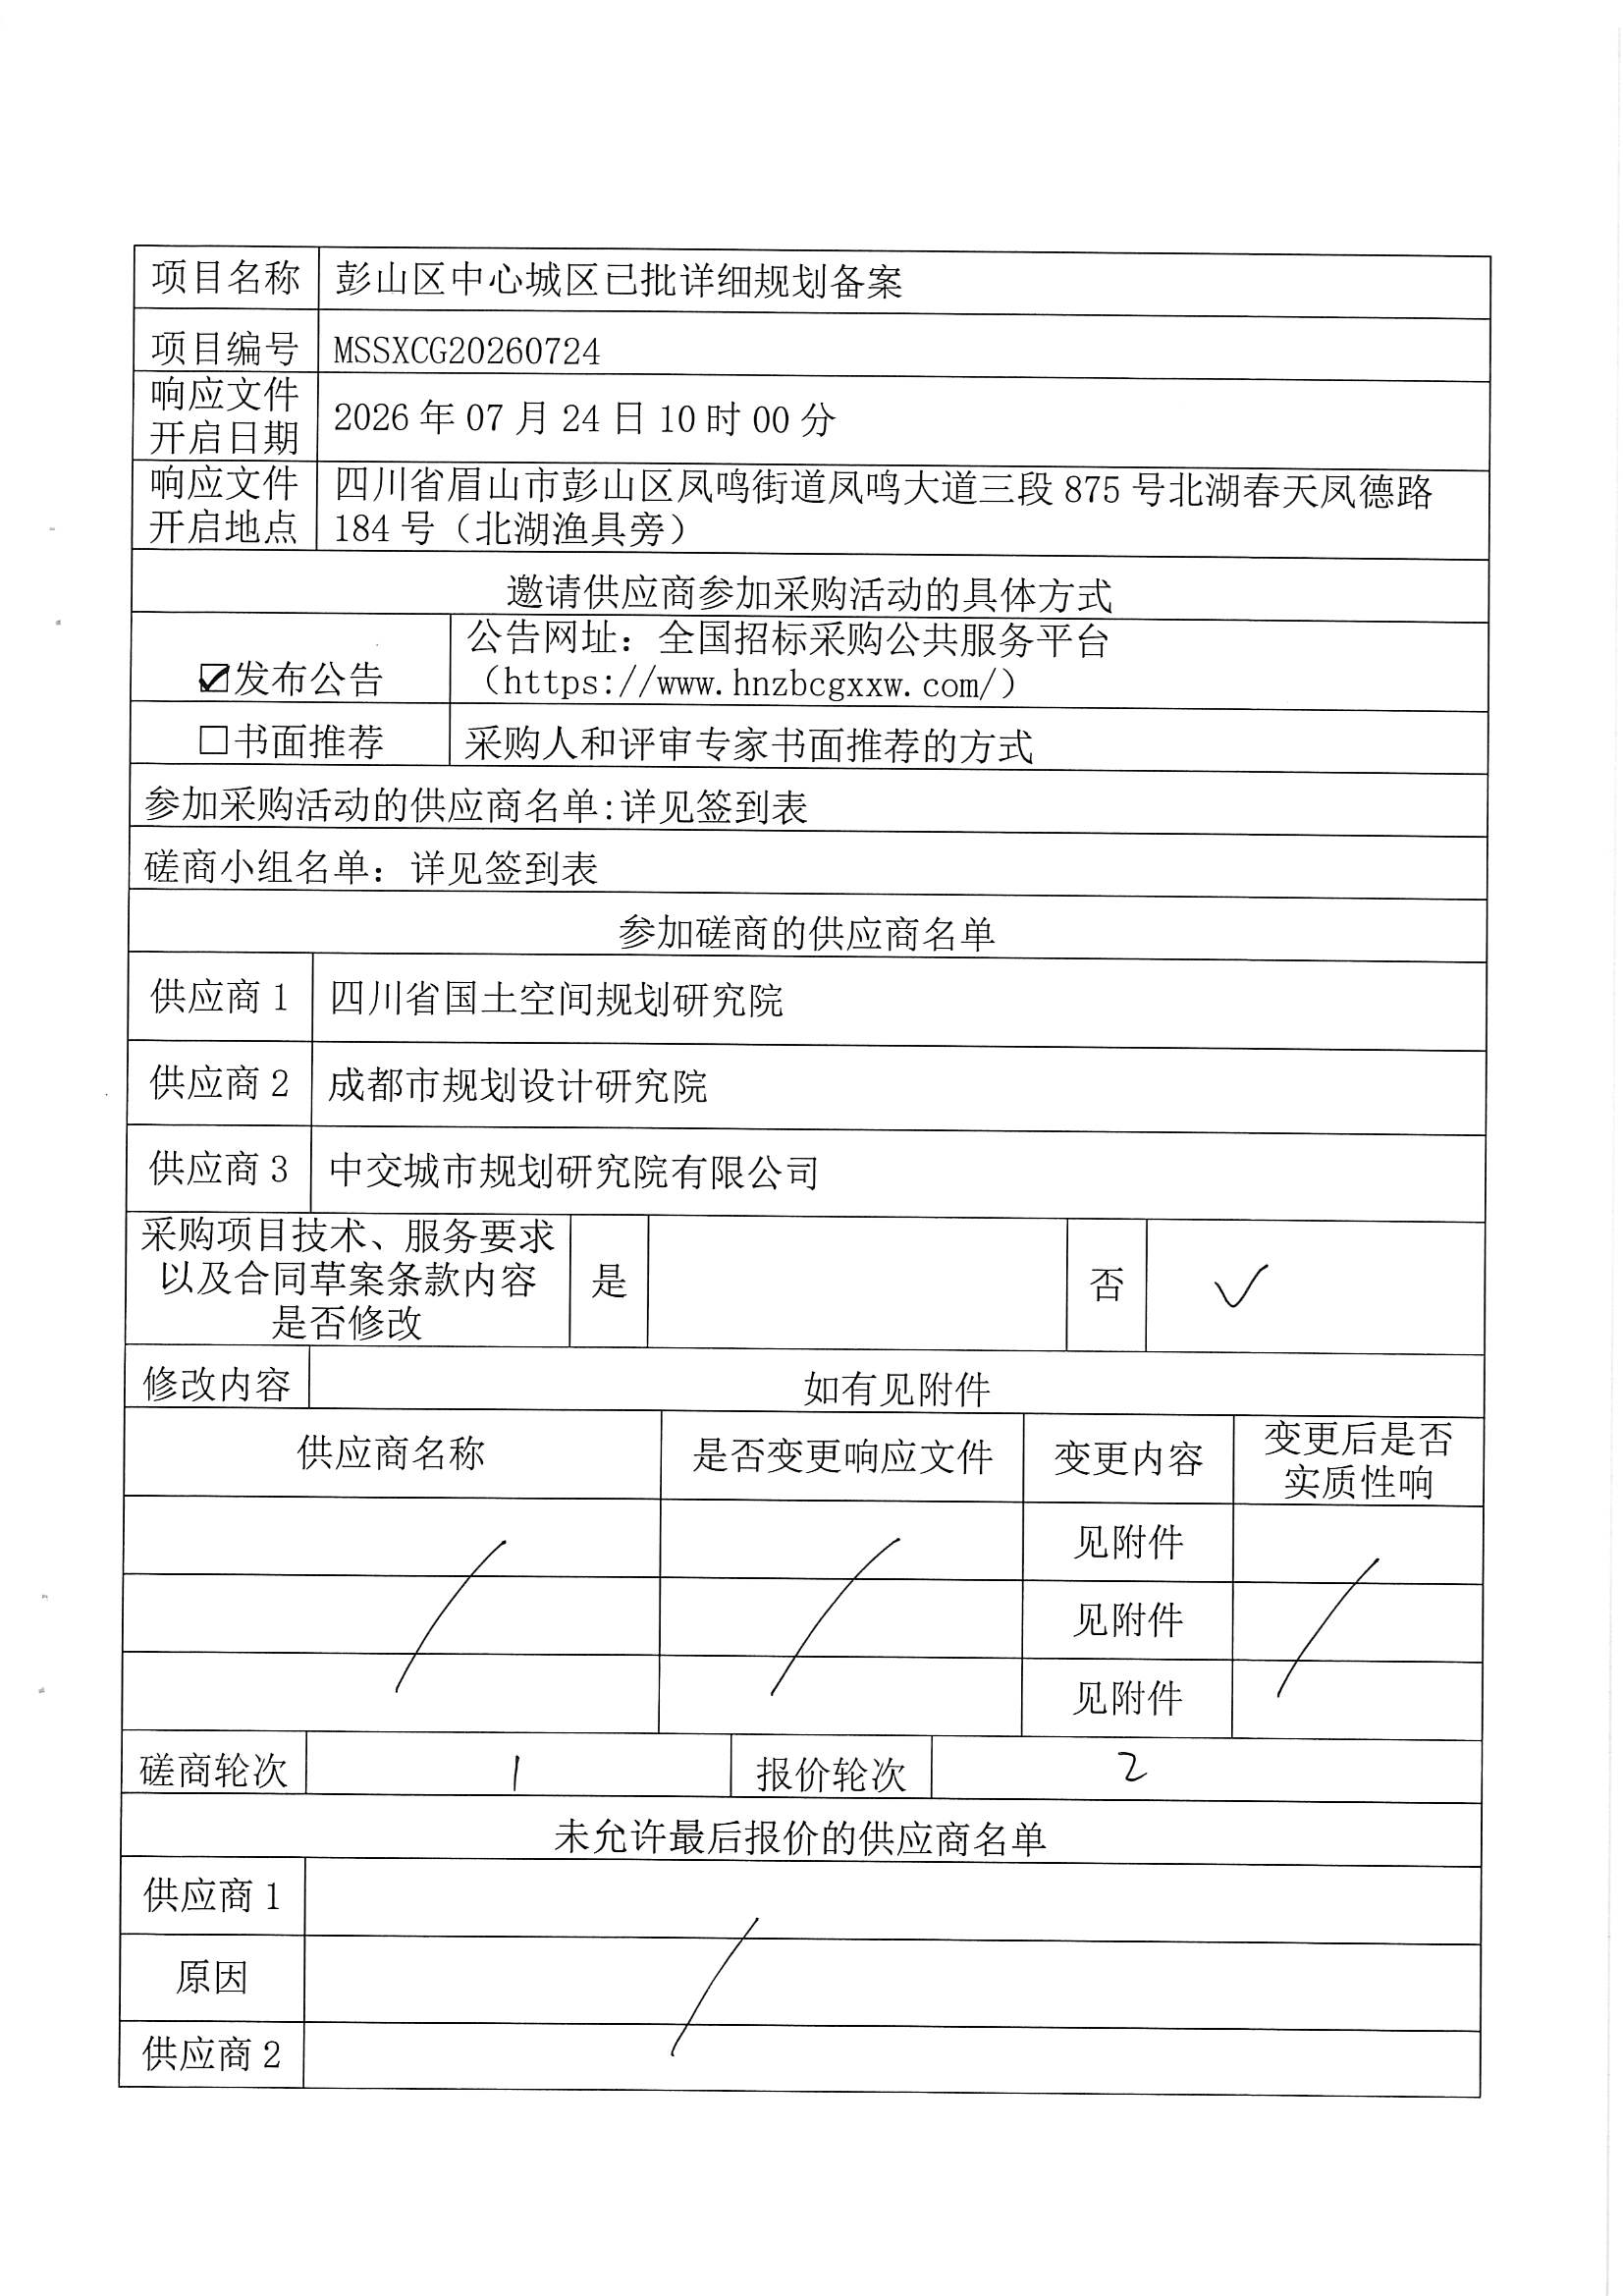 项目名称 彭山区中心城区已批详细规划备案
项目编号 MSSXCG20260724
响应文件
开启日期 2026 年 07 月 24 日 10 时 00 分
响应文件
开启地点 四川省眉山市彭山区凤鸣街道凤鸣大道三段 875 号北湖春天凤德路
184 号（北湖渔具旁）
邀请供应商参加采购活动的具体方式
☑发布公告 公告网址：全国招标采购公共服务平台
（https://www.hnzbcgxxw.com/）
□书面推荐 采购人和评审专家书面推荐的方式
参加采购活动的供应商名单:详见签到表
磋商小组名单：详见签到表
参加磋商的供应商名单
供应商 1 四川省国土空间规划研究院
供应商 2 成都市规划设计研究院
供应商 3 中交城市规划研究院有限公司
采购项目技术、服务要求
以及合同草案条款内容
是否修改 是 否 √
修改内容 如有见附件
供应商名称 是否变更响应文件 变更内容 变更后是否
实质性响
见附件
见附件
见附件
磋商轮次 1 报价轮次 2
未允许最后报价的供应商名单
供应商 1
原因
供应商 2